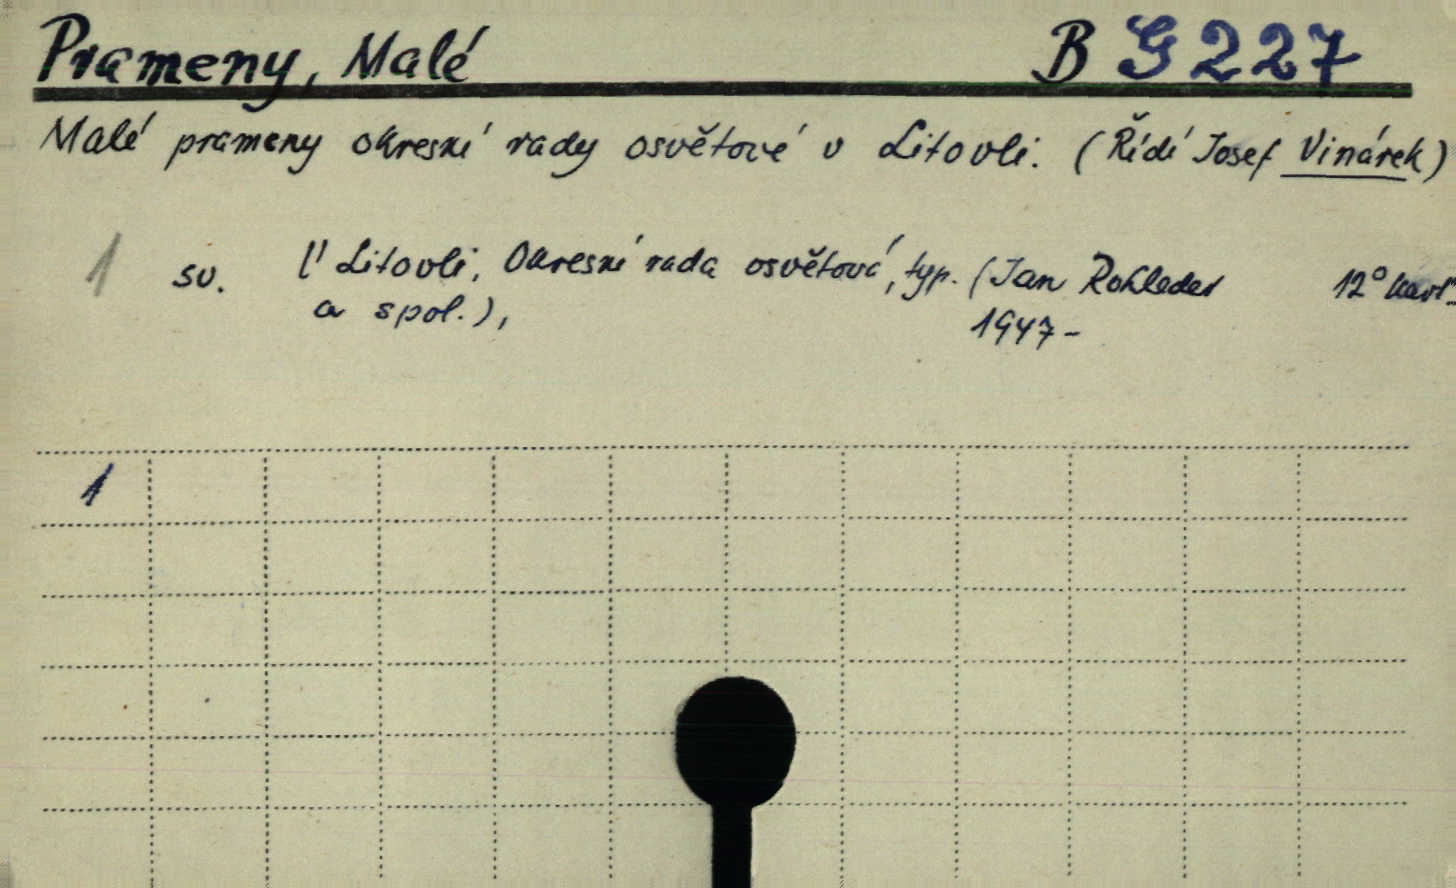 Prameny, Malé B G 227
Malé prameny okresní rady osvětové v Litovli. (Řídí Josef Vinárek)
1 sv. V Litovli, Okresní rada osvětová, typ. (Jan Rohleder 12° kart.
a spol.), 1947-
1